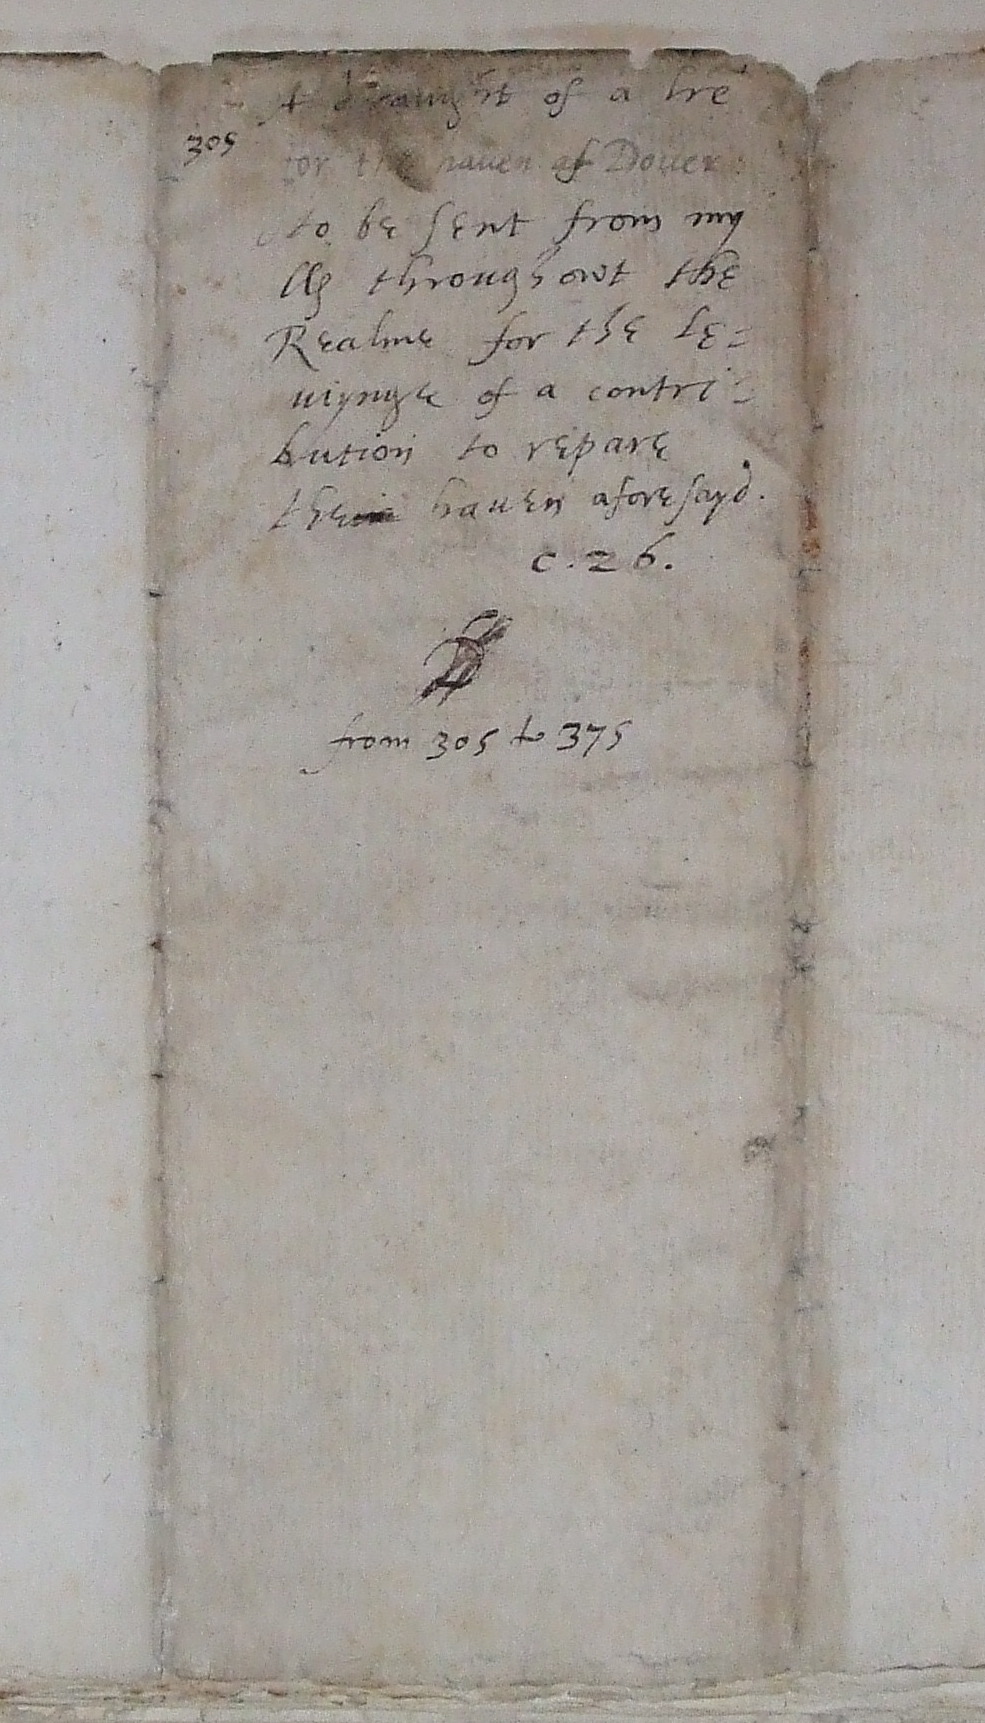 A draught of a lre
305
for the hauen of Douer
to be sent from my
lls throughowt the
Realme for the le=
uiynge of a contri=
bution to repare
the hauen aforesayd.
c. 26.
from 305 to 375